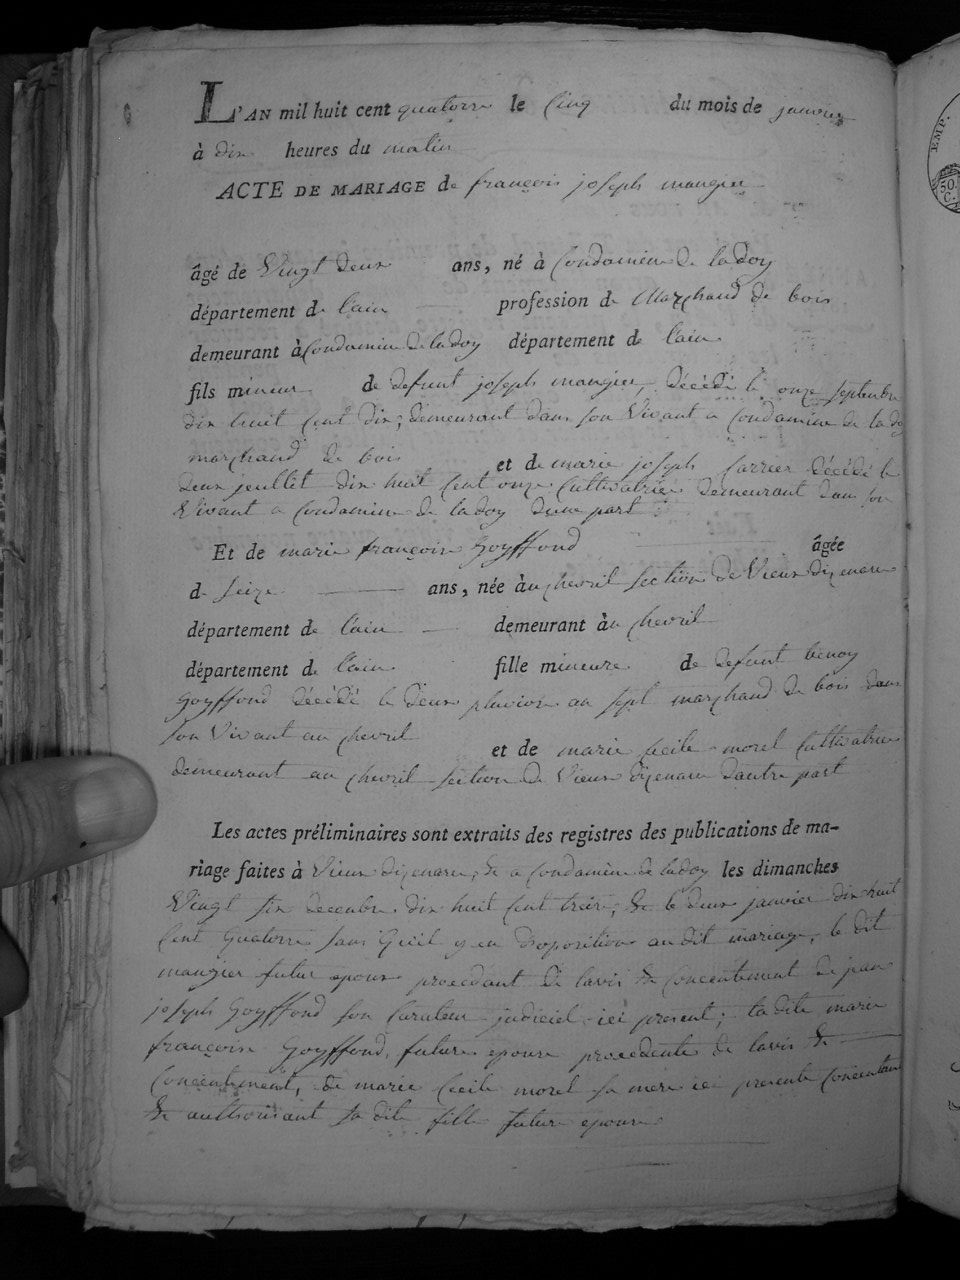 L'AN mil huit cent quatorze le cinq du mois de janvier
à dix heures du matin
ACTE DE MARIAGE de françois joseph mangier
âgé de Vingt deux ans, né à Condamine de la doy
département de l'ain profession de Marchand de bois
demeurant à Condamine de la doy département de l'ain
fils mineur de defunt joseph mangier, décédé le onze septembre
dix huit cent dix; demeurant dans son Vivant a Condamine de la doy
marchand de bois et de marie joseph Carrier décédé le
deux jeuillet dix huit cent onze Cultivatrice demeurant dans son
Vivant a Condamine de la doy d'une part
Et de marie françoise Goyffond âgée
de seize ans, née au chevril section de Vieux dizenave
département de l'ain demeurant au chevril
département de l'ain fille mineure de defunt benoy
Goyffond décédé le deux pluviose an sept marchand de bois dans
son Vivant au chevril et de marie Cecile morel Cultivatrice
demeurant au chevril section de Vieux dizenave d'autre part
Les actes préliminaires sont extraits des registres des publications de ma-
riage faites à Vieux dizenave, & a Condamine de la doy les dimanches
Vingt six decembre dix huit cent treize, & le deux janvier dix huit
Cent Quatorze sans Qu'il y eu d'oposition au dit mariage, le dit
mangier futur epoux procedant de l'avis & concentement de jean
joseph Goyffond son Curateur judiciel ici present; la dite marie
françoise Goyffond, future epouse procedente de l'avis &
Concentement, de marie Cecile morel sa mere ici presente concentant
& authorisant sa dite fille future epouse
EMP.
50.
C.